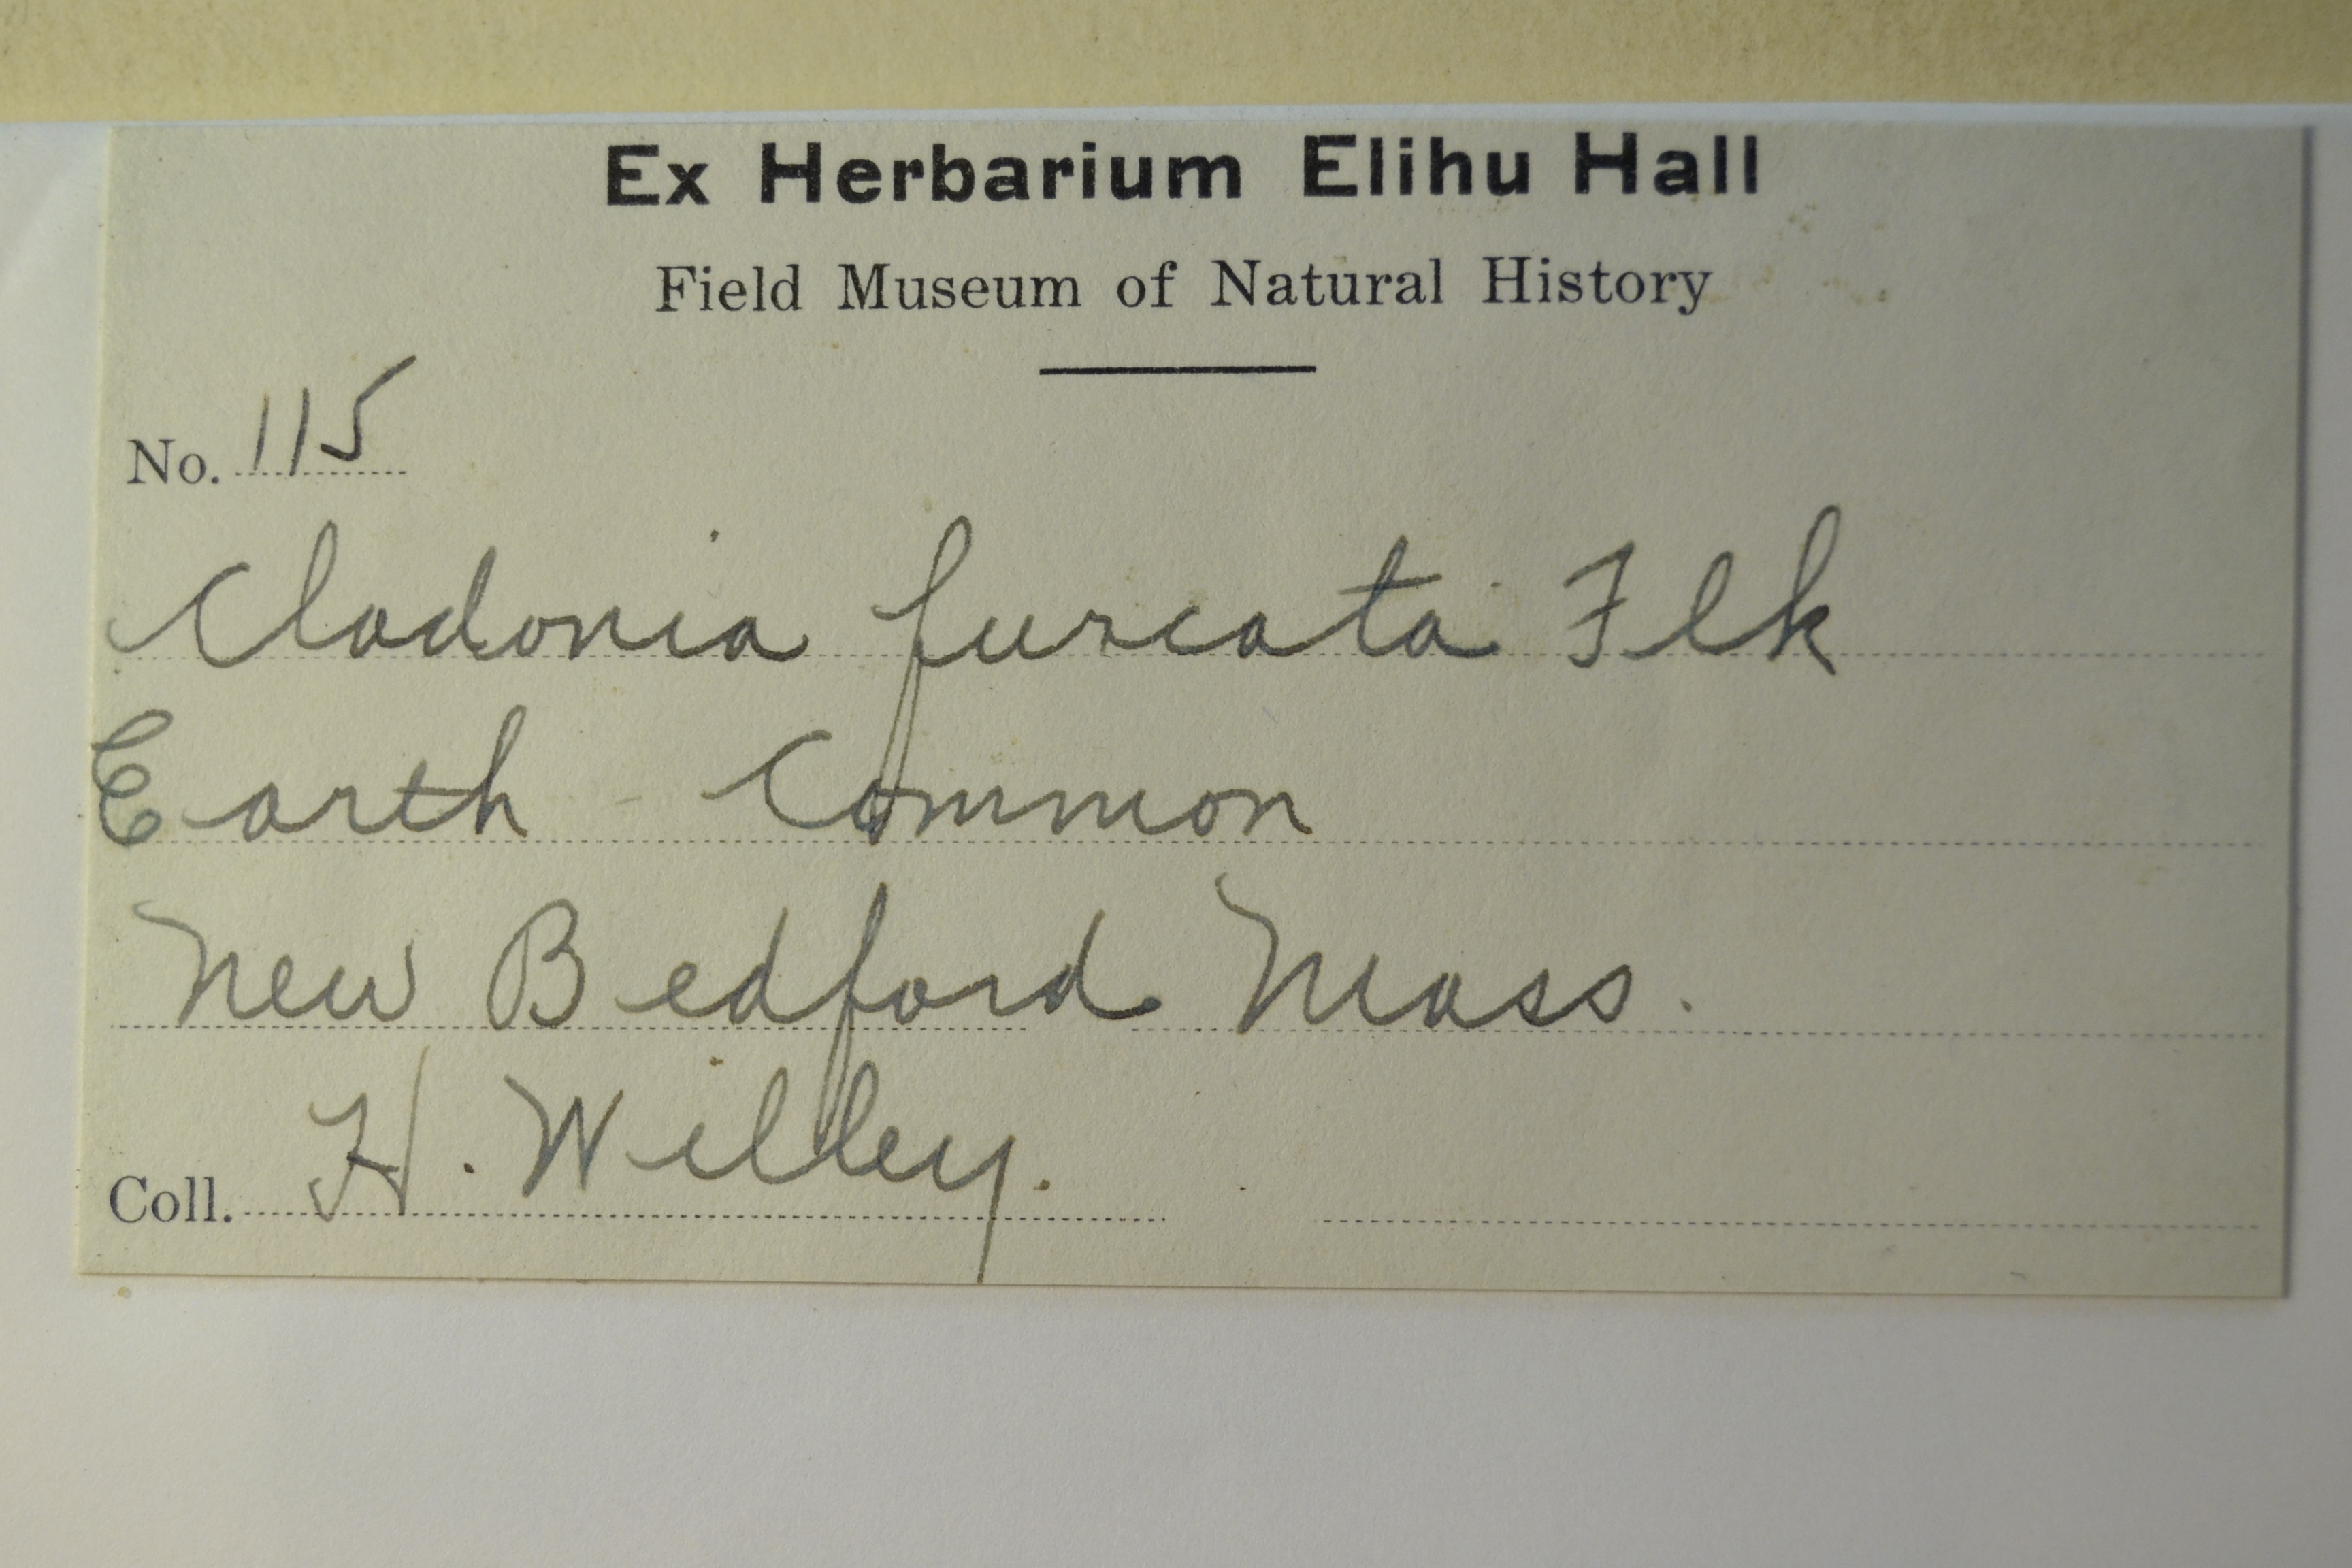 Ex Herbarium Elihu Hall
Field Museum of Natural History
No. 115
Cladonia furcata Flk
Earth Common
New Bedford Mass.
Coll. H. Willey.